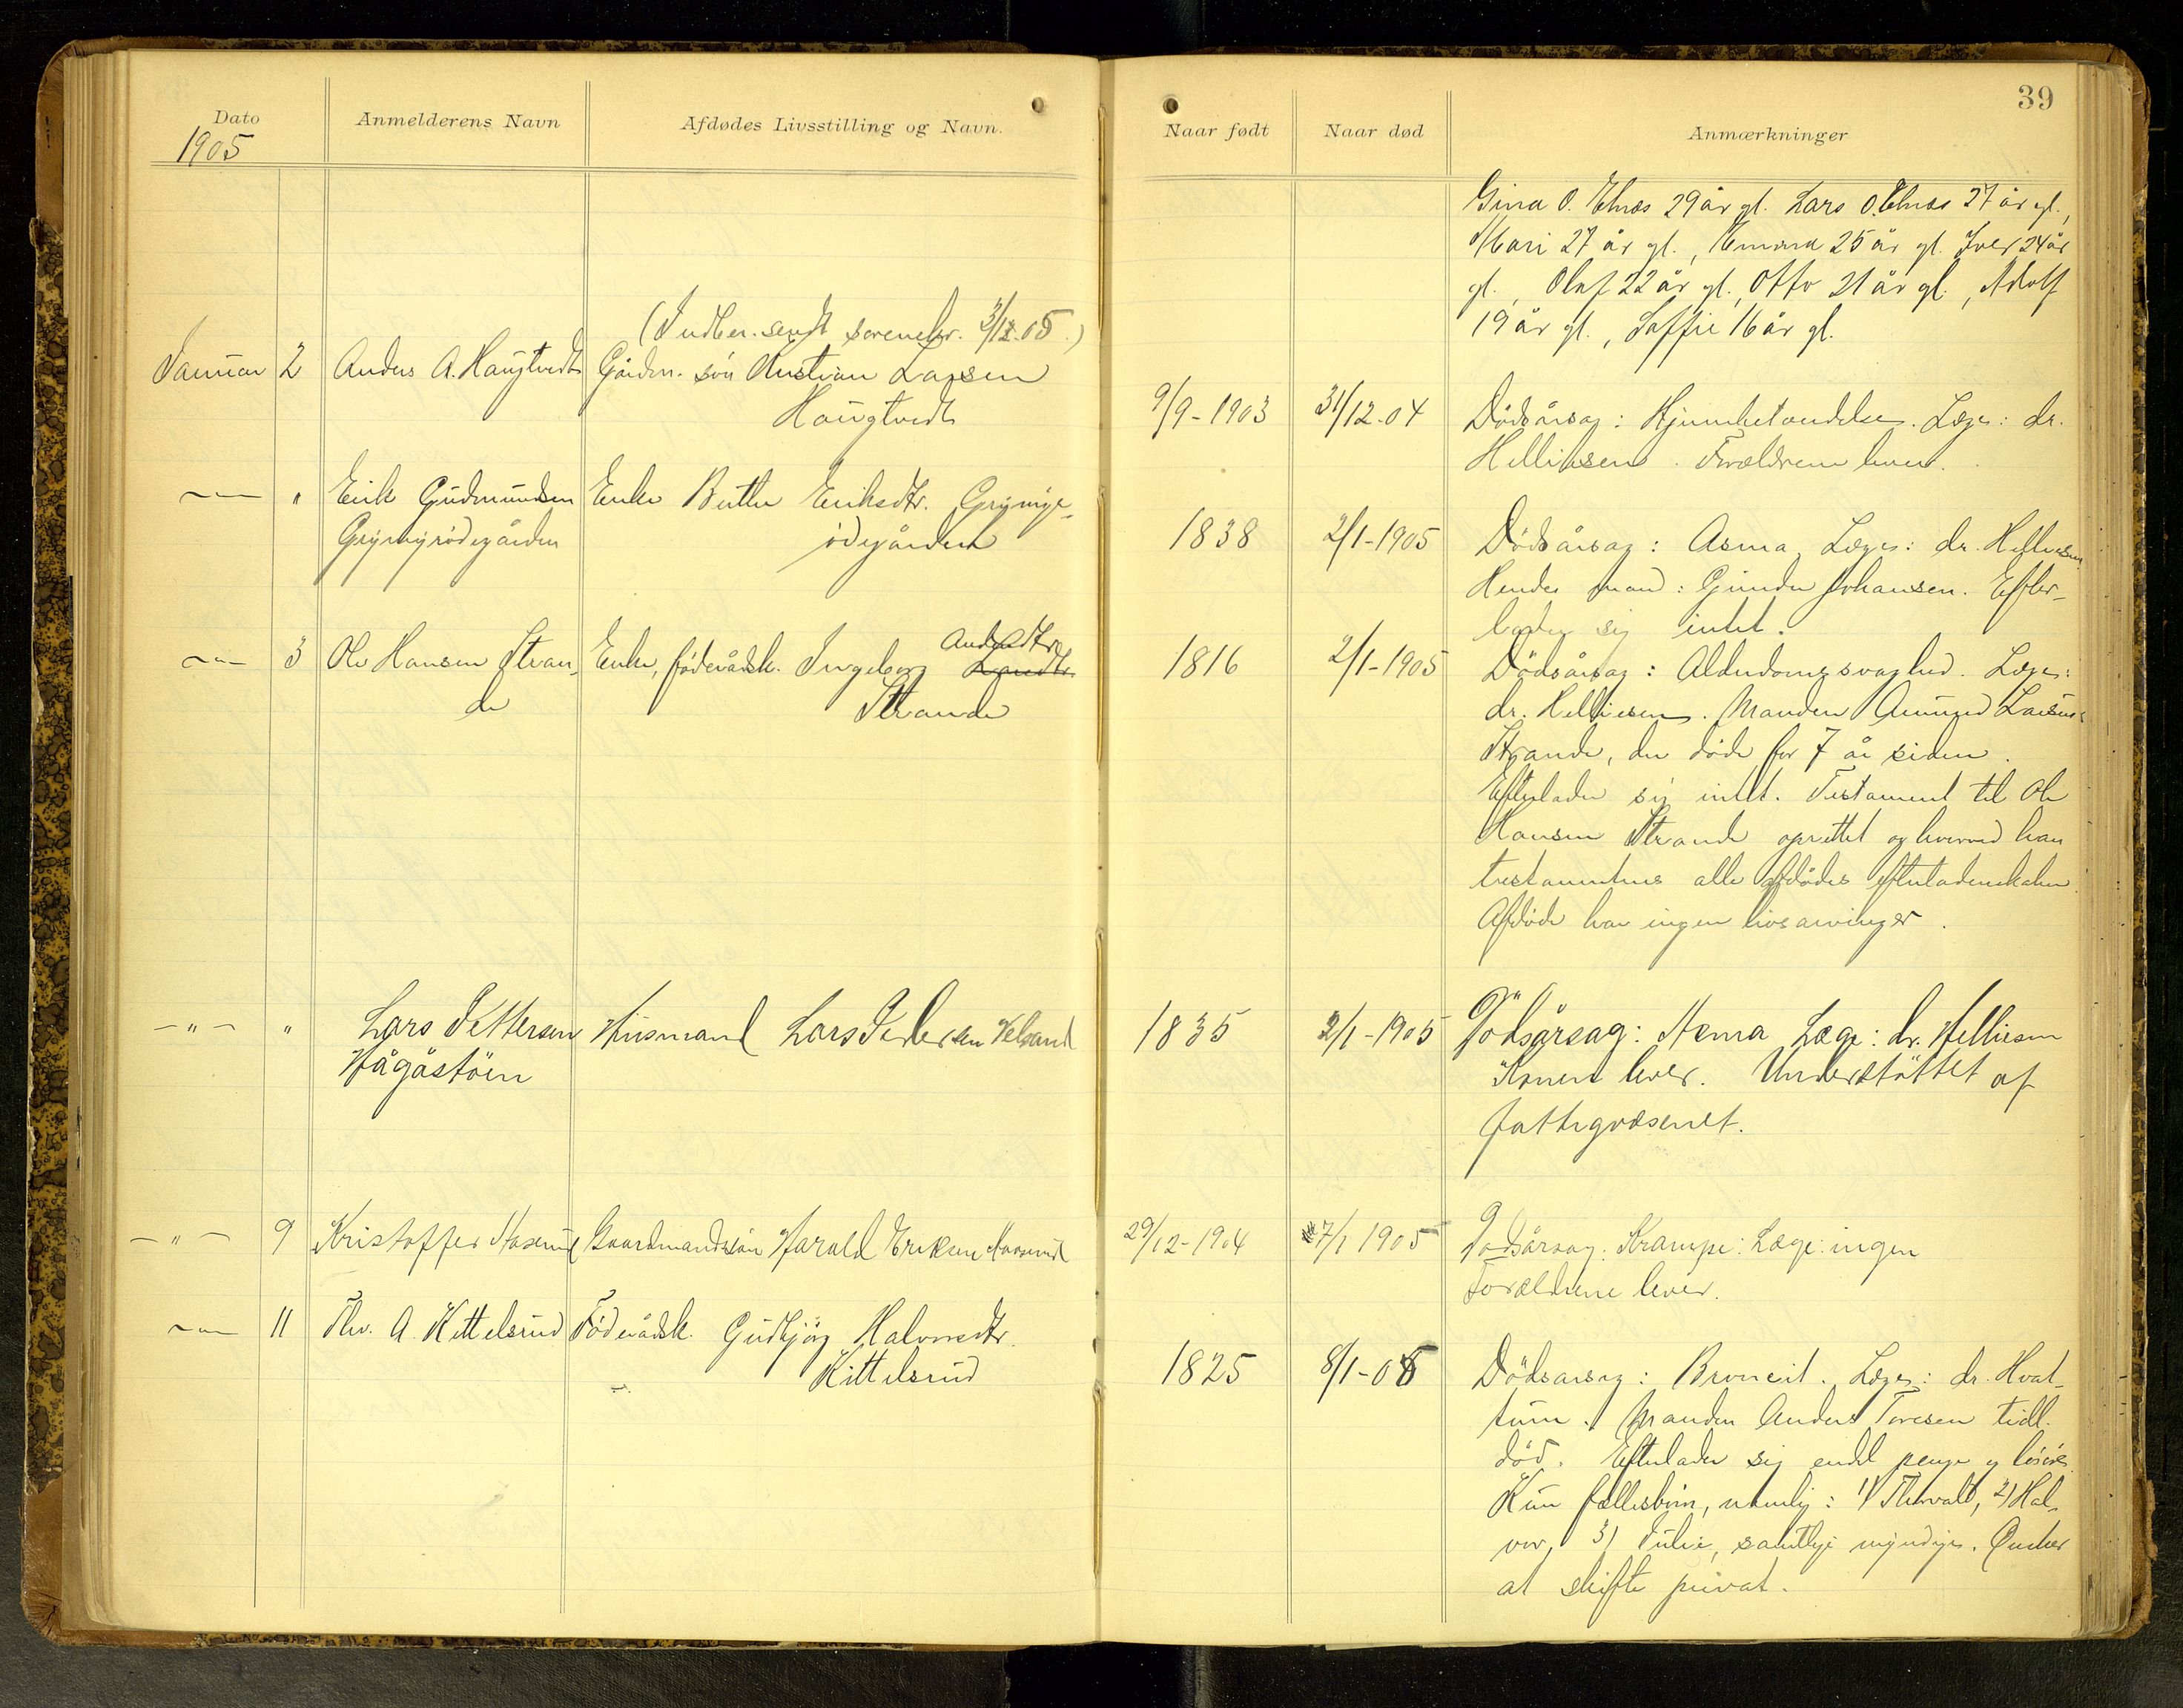 39
Dato
Anmelderens Navn
Afdødes Livsstilling og Navn.
Naar født
Naar død
Anmærkninger
1905
Gina O. Elnæs 29 år gl. Lars O. Elnæs 27 år gl.,
Mari 27 år gl., Emma 25 år gl. Iver 24 år
gl., Olaf 22 år gl., Otto 21 år gl., Adolf
19 år gl., Soffie 16 år gl.
(Indber. sendt sorenskr. 3/12.05.)
Januar 2 Anders A. Haugtvedt Gårdm. sön Kristian Larsen
Haugtvedt
9/9-1903 31/12-04 Dödsårsag: Hjernebetændelse. Læge: dr.
Helliesen. Forældrene lever.
-"- " Erik Gudmundsen Enke Berthe Eriksdtr. Gryinge-
ödegården
1838 2/1-1905 Dödsårsag: Asma. Læge: dr. Helliesen
Hendes mand: Gunder Johansen. Efter-
lader sig intet.
-"- 3 Ole Hansen Stran- Enke, föderådsk. Ingeborg Andersdtr.
de
Strande
1816 2/1-1905 Dödsårsag: Alderdomssvaghed. Læge:
dr. Helliesen. Manden Amund Larsen
Strande, der döde for 7 år siden.
Efterlader sig intet. Testament til Ole
Hansen Strande oprettet og hvorved han
testamenteres alle afdödes efterladenskaber.
Afdöde har ingen livsarvinger.
-"- " Lars Pettersen Husmand Lars Pedersen Velsand
Hågåstöen
1835 2/1-1905 Dödsårsag: Asma Læge: dr. Helliesen
Konen lever. Understöttet af
fattigvæsenet.
-"- 9 Kristoffer Haserud Gaardmandssön Harald Eriksen Haserud
29/12-1904 7/1 1905 Dödsårsag: Krampe: Læge: ingen
Forældrene lever.
-"- 11 Thv. A. Kittelsrud Föderådsk. Gudbjör Halvorsdtr.
Kittelsrud
1825 8/1-05 Dödsårsag: Bronkit. Læge: dr. Hvat-
tum. Manden Anders Toresen tidl.
död. Efterlader sig endel penge og lösöre.
Kun fællesbörn, nemlig: 1) Thorvald, 2) Hal-
vor, 3) Julie, samtlige myndige. Önsker
at skifte privat.